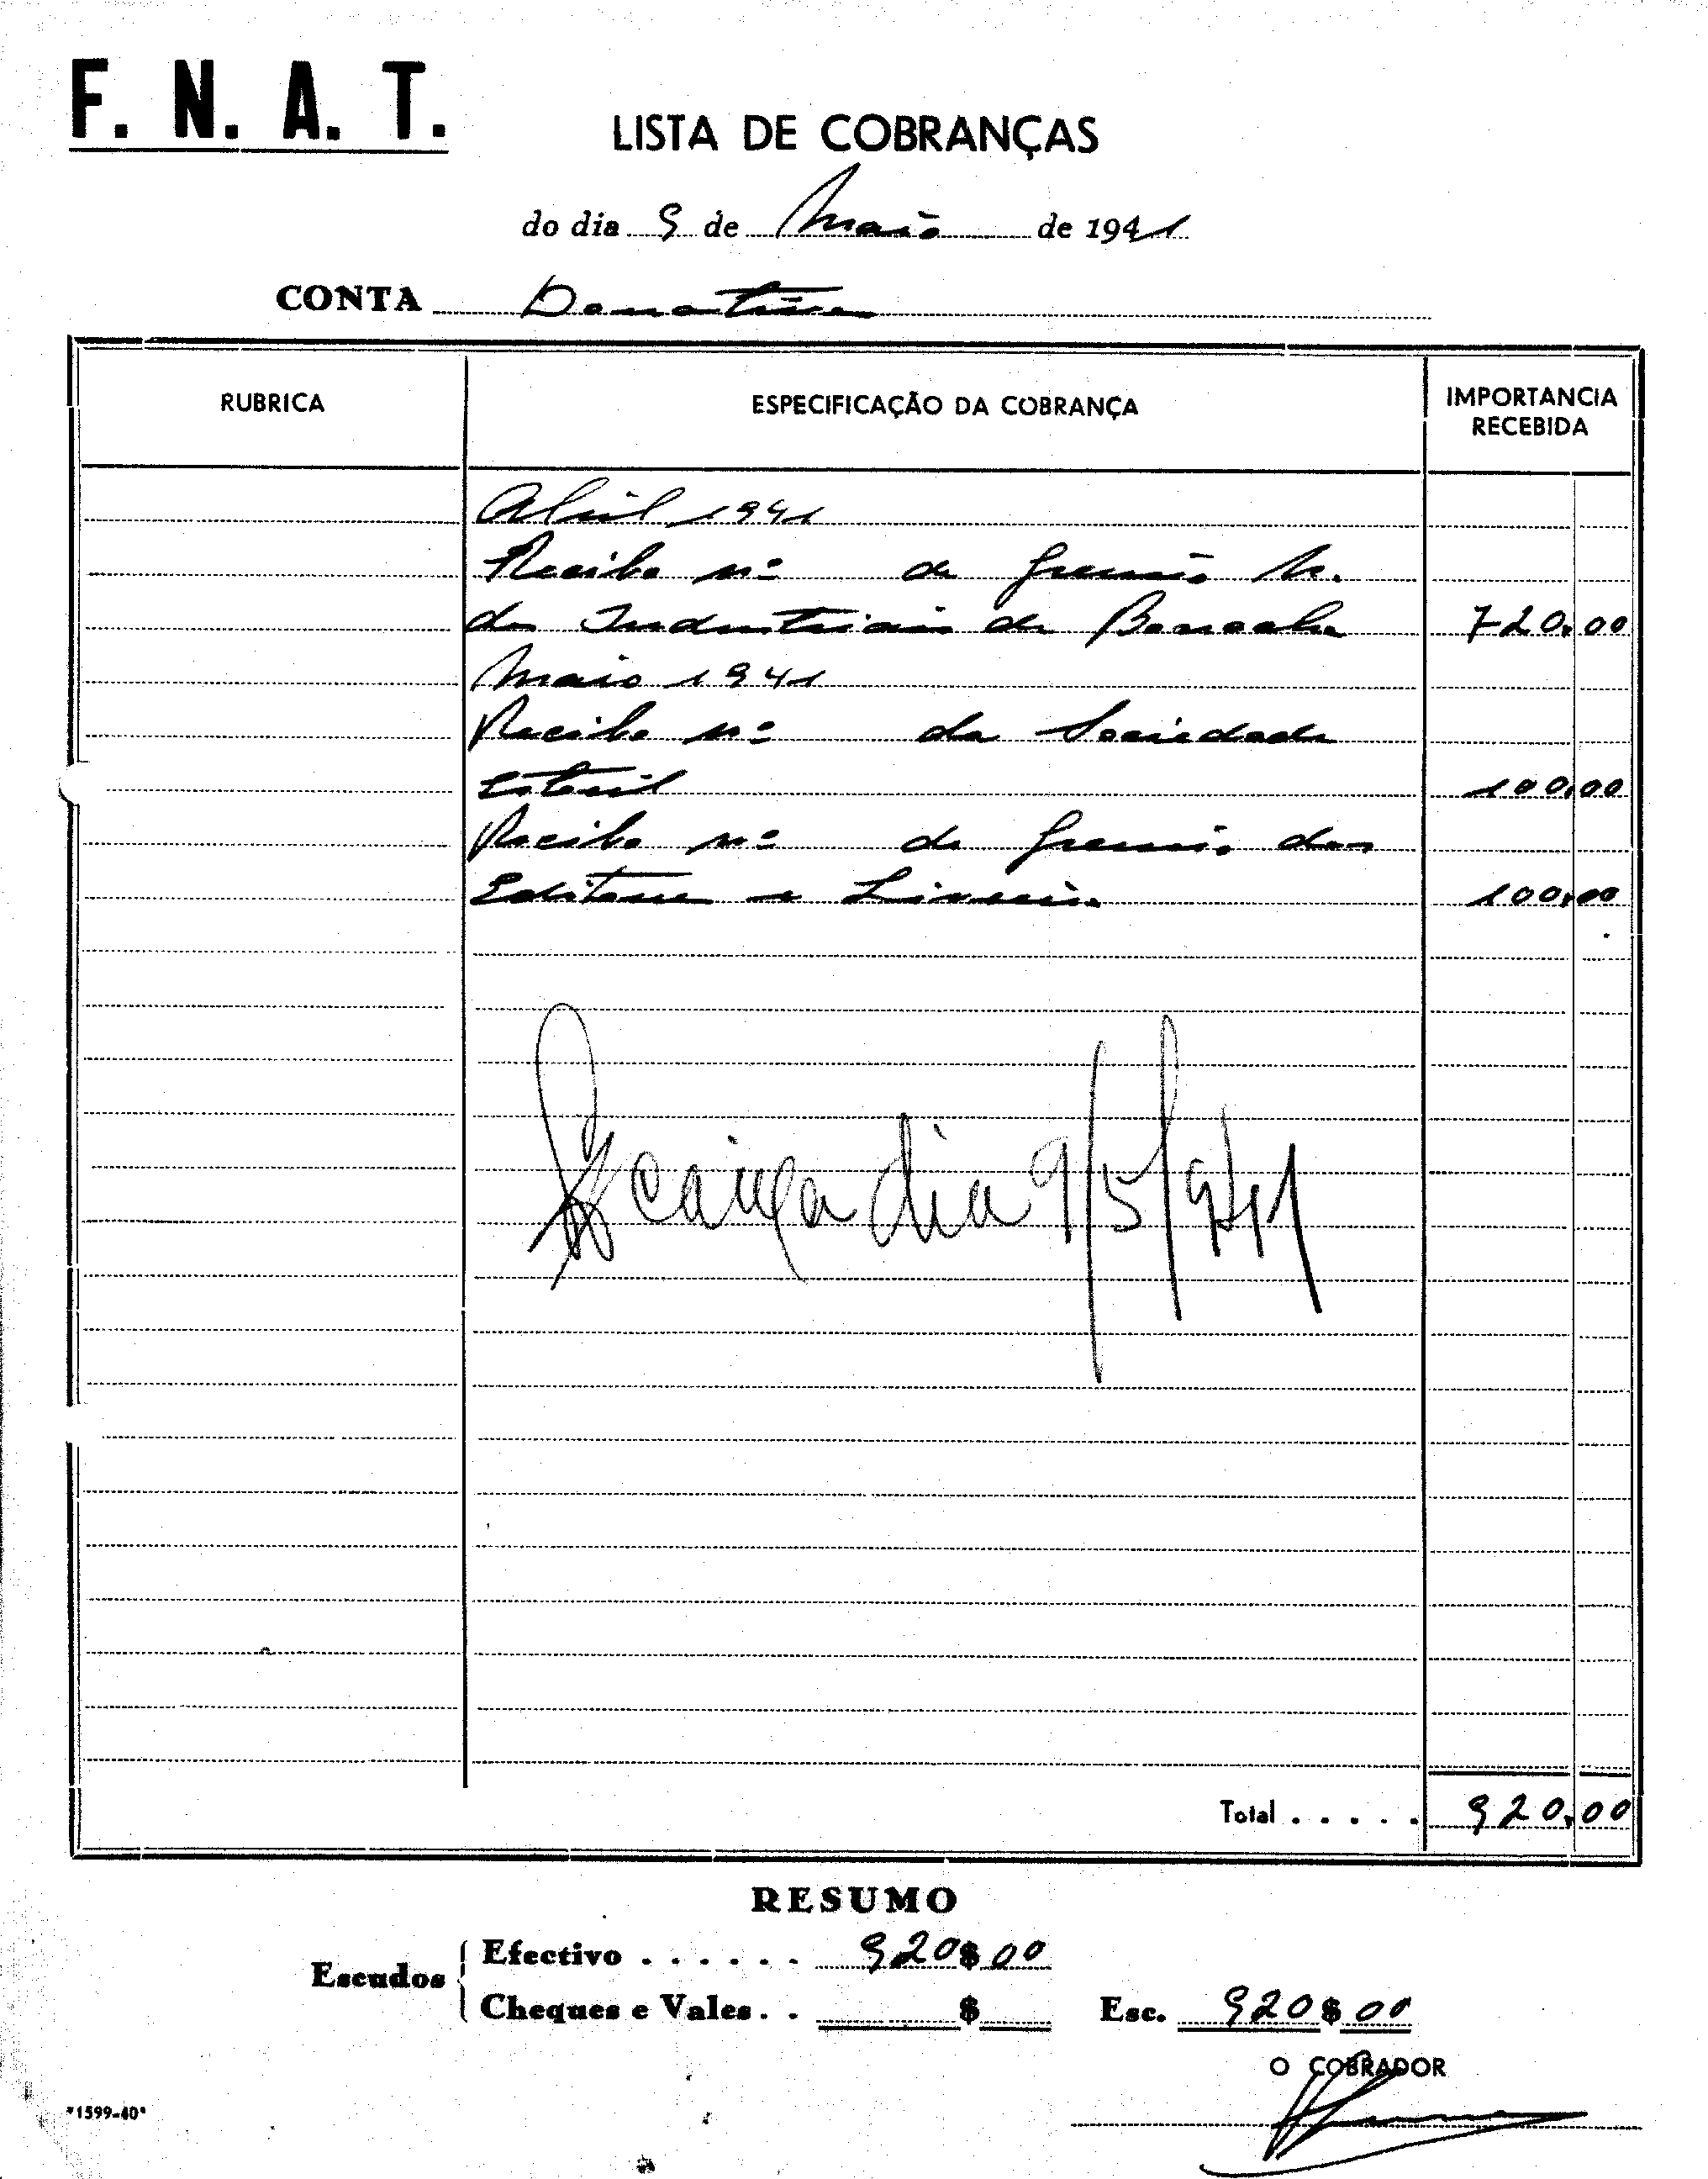 F. N. A. T.
LISTA DE COBRANÇAS
do dia 9 de Maio de 1941
CONTA Donativos
RUBRICA
ESPECIFICAÇÃO DA COBRANÇA
IMPORTANCIA
RECEBIDA
Abril 1941
Recibo nº do Gremio N.
dos Industriais de Borracha 720,00
Maio 1941
Recibo nº da Sociedade
Estoril 100,00
Recibo nº do Gremio dos
Editores e Livreiros 100,00
caixa dia 9/5/941
Total . . . . . 920,00
RESUMO
Escudos
Efectivo . . . . . . 920$00
Cheques e Vales . . $
Esc. 920$00
O COBRADOR
"1599-40"